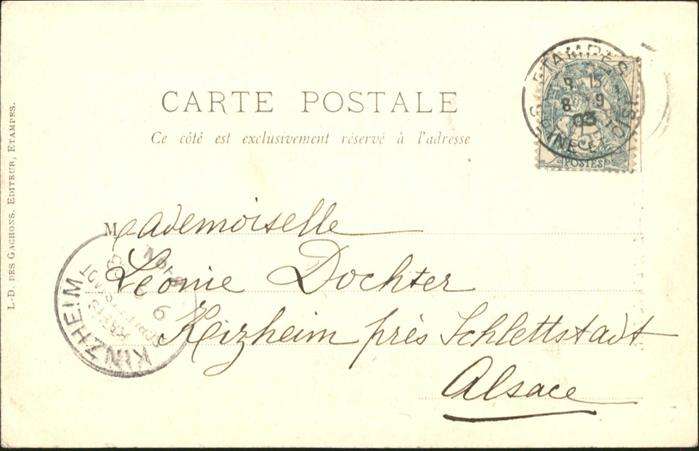 CARTE POSTALE
Ce côté est exclusivement réservé à l'adresse
L.-D. DES GACHONS, EDITEUR, ETAMPES.
ETAMPES
8 15
8 9
03
SEINE-ET-OISE
POSTES
Mademoiselle
Léonie Dochter
Kizheim près Schlettstadt
Alsace
KINZHEIM